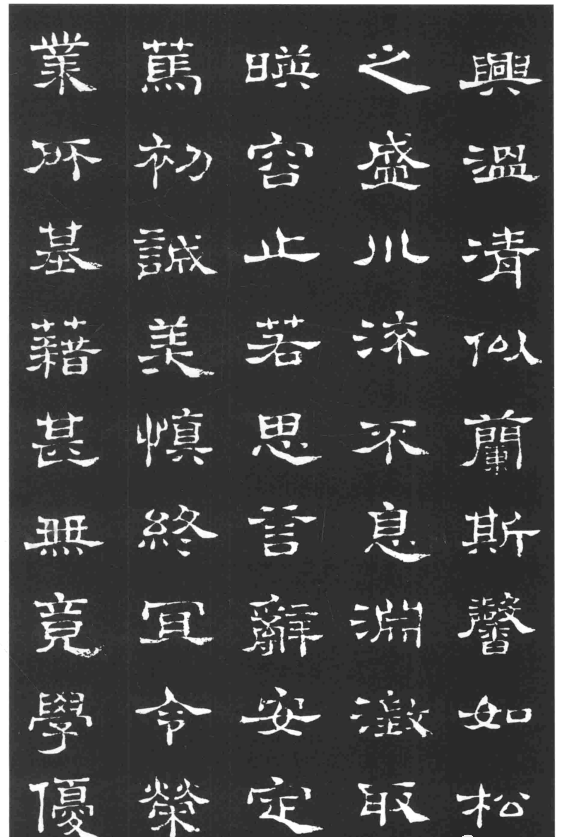 興溫凊似蘭斯馨如松
之盛川流不息淵澂取
暎容止若思言辭安定
萬初誠美慎終冝令榮
業所基藉甚無竟學優